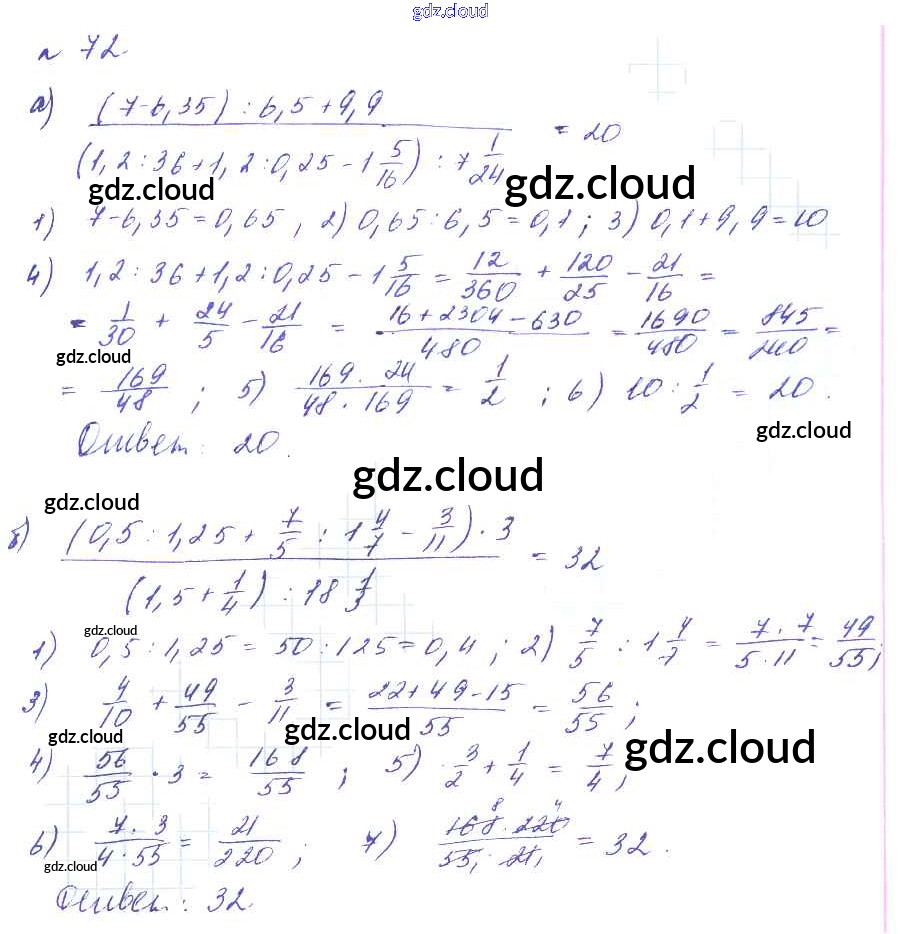 gdz.cloud
н 72.
а) (7-6,35) : 6,5 + 9,9 / (1,2 : 36 + 1,2 : 0,25 - 1 5/16) : 7 1/24 = 20
gdz.cloud gdz.cloud
1) 7-6,35 = 0,65 , 2) 0,65 : 6,5 = 0,1 ; 3) 0,1 + 9,9 = 10
4) 1,2 : 36 + 1,2 : 0,25 - 1 5/16 = 12/360 + 120/25 - 21/16 =
= 1/30 + 24/5 - 21/16 = 16 + 2304 - 630 / 480 = 1690/480 = 845/240 =
gdz.cloud
= 169/48 ; 5) 169 · 24 / 48 · 169 = 1/2 ; 6) 10 : 1/2 = 20 .
gdz.cloud
Ответ : 20 .
gdz.cloud
gdz.cloud
б) (0,5 : 1,25 + 7/5 : 1 4/7 - 3/11) · 3 / (1,5 + 1/4) : 18 1/3 = 32
gdz.cloud
1) 0,5 : 1,25 = 50 : 125 = 0,4 ; 2) 7/5 : 1 4/7 = 7 · 7 / 5 · 11 = 49/55 ;
3) 4/10 + 49/55 - 3/11 = 22 + 49 - 15 / 55 = 56/55 ;
gdz.cloud gdz.cloud gdz.cloud
4) 56/55 · 3 = 168/55 ; 5) 3/2 + 1/4 = 7/4 ;
6) 7 · 3 / 4 · 55 = 21/220 ; 7) 168 8 · 220 4 / 55 1 · 21 1 = 32 .
gdz.cloud
Ответ : 32